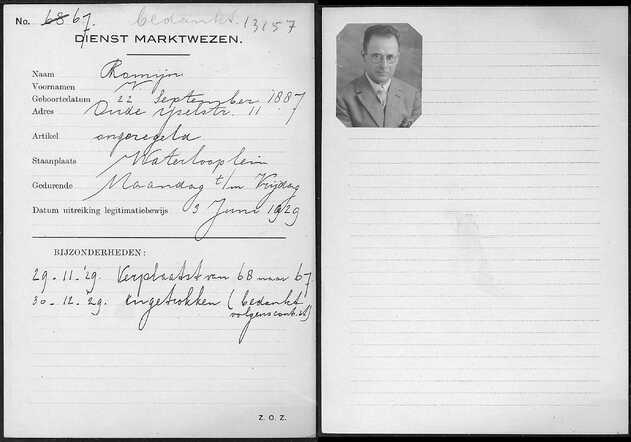 No. 68 67. bedankt. 13157
DIENST MARKTWEZEN.
Naam Romijn
Voornamen N.
Geboortedatum 22 September 1887
Adres Oude ijselstr. 11
Artikel ongeregeld
Staanplaats Waterlooplein
Gedurende Maandag t/m Vrijdag
Datum uitreiking legitimatiebewijs 3 Juni 1929
BIJZONDERHEDEN:
29-11-'29. Verplaatst van 68 naar 67.
30-12-'29. ingetrokken (bedankt
volgens
Z. O. Z.